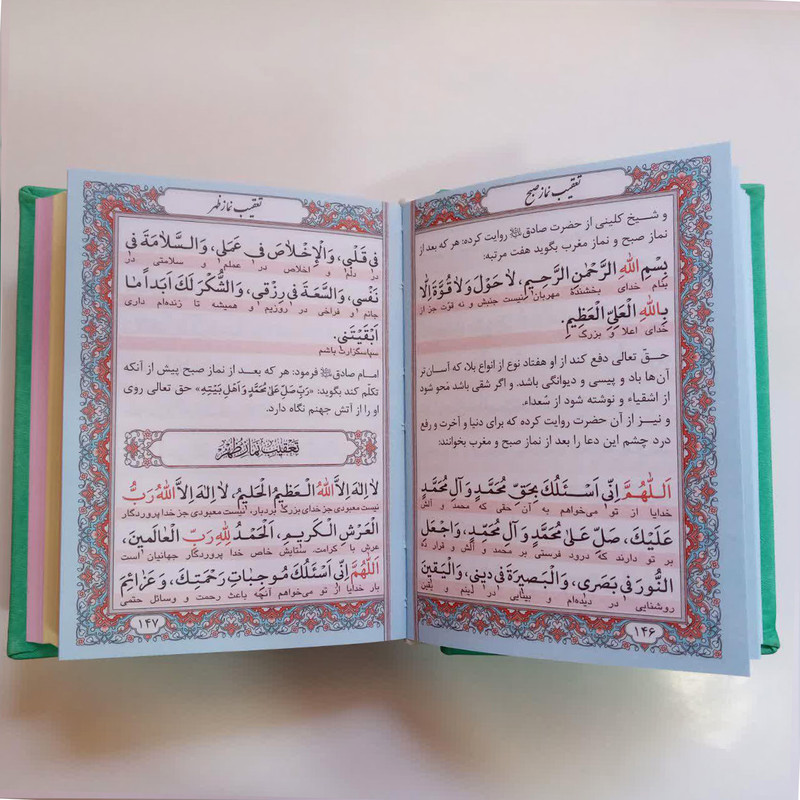 تعقیب نماز صبح
و شیخ کلینی از حضرت صادق روایت کرده: هر که بعد از
نماز صبح و نماز مغرب بگوید هفت مرتبه:
بِسْمِ اللهِ الرَّحْمٰنِ الرَّحیمِ، لاٰ حَوْلَ وَ لاٰ قُوَّةَ اِلّاٰ
بنام خدای بخشنده مهربان نیست جنبش و نه قوت جز از
بِاللهِ الْعَلِیِّ الْعَظیمِ.
خدای اعلا و بزرگ
حقّ تعالی دفع کند از او هفتاد نوع از انواع بلا، که آسان‌تر
آن‌ها باد و پیسی و دیوانگی باشد. و اگر شقی باشد مَحو شود
از اشقیاء و نوشته شود از سُعداء.
و نیز از آن حضرت روایت کرده که برای دنیا و آخرت و رفع
درد چشم این دعا را بعد از نماز صبح و مغرب بخوانند:
اَللّٰهُمَّ اِنّی اَسْئَلُكَ بِحَقِّ مُحَمَّدٍ وَ آلِ مُحَمَّدٍ
خدایا از تو می‌خواهم به آن حقی که محمد و آلش
عَلَیْكَ، صَلِّ عَلیٰ مُحَمَّدٍ وَ آلِ مُحَمَّدٍ، وَ اجْعَلِ
بر تو دارند که درود فرستی بر محمد و آلش و قرار ده
النُّورَ فی بَصَری، وَ الْبَصیرَةَ فی دینی، وَ الْیَقینَ
روشنایی در دیده‌ام و بینایی در دینم و یقین
۱۴۶
تعقیب نماز ظهر
فی قَلْبی، وَ الْاِخْلاٰصَ فی عَمَلی، وَ السَّلاٰمَةَ فی
در دلم و اخلاص در عملم و سلامتی در
نَفْسی، وَ السَّعَةَ فی رِزْقی، وَ الشُّکْرَ لَكَ اَبَداً مٰا
جانم و فراخی در روزیم و همیشه تا زنده‌ام داری
اَبْقَیْتَنی.
سپاسگزارت باشم
امام صادق فرمود: هر که بعد از نماز صبح پیش از آنکه
تکلّم کند بگوید: «رَبِّ صَلِّ عَلیٰ مُحَمَّدٍ وَ اَهْلِ بَیْتِهِ» حق تعالی روی
او را از آتش جهنم نگاه دارد.
تعقیب نماز ظهر
لاٰ اِلهَ اِلاَّ اللهُ الْعَظیمُ الْحَلیمُ، لاٰ اِلهَ اِلاَّ اللهُ رَبُّ
نیست معبودی جز خدای بزرگ بردبار، نیست معبودی جز خدا پروردگار
الْعَرْشِ الْکَریمِ، اَلْحَمْدُ لِلّٰهِ رَبِّ الْعٰالَمینَ،
عرش با کرامت. ستایش خاص خدا پروردگار جهانیان است
اَللّٰهُمَّ اِنّی اَسْئَلُكَ مُوجِبٰاتِ رَحْمَتِكَ، وَ عَزٰائِمَ
بار خدایا از تو می‌خواهم آنچه باعث رحمت و وسائل حتمی
۱۴۷